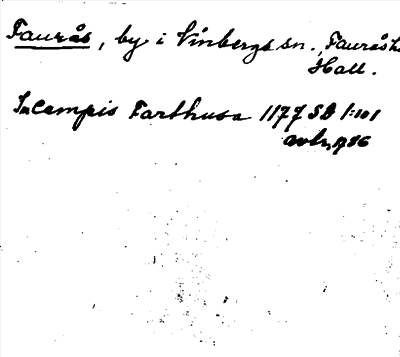 Faurås, by i Vinbergs sn., Faurås h
Hall.
In campis Farthusa 1177 SD 1:101
avtr. 1786